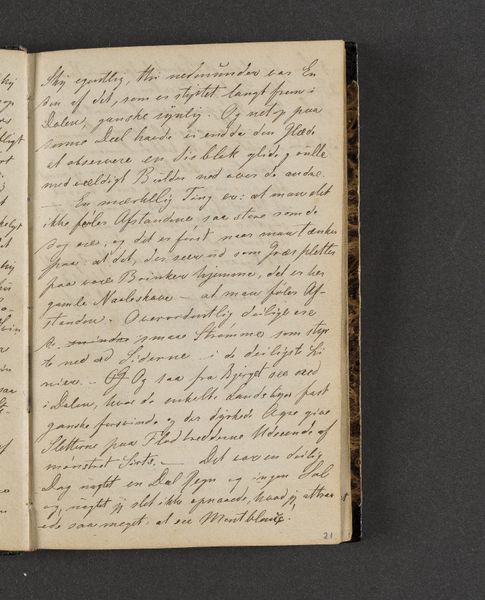 Sky egentlig, thi nedenunder var En
den af det, som er styrtet langt frem i
Dalen, ganske synlig. Og netop paa
samme Deel havde vi endda den Glæde
at observere en Iisblok glide og rulle
med vældigt Bulder ned over de andre.
— En mærkelig Ting er: at man slet
ikke føler Afstandene saa store som de
dog ere, og det er først naar man tænker
paa: at det, der seer ud som Græspletter
paa vore Brinker hjemme, det er her
gamle Naaleskove — at man føler Af-
standen. Overordentlig deilige ere
de smaa Strømme som styr
te ned ad Siderne i de deiligste Li
nier. — Og saa fra Bjerget see ned
i Dalen, hvor de enkelte Landsbyer fast
ganske forsvinde og der dyrkede Agre give
Sletterne paa Flodbredderne Udseende af
mønstret Sirts. — Det var en deilig
Dag noget en Deel Regn og ingen Sol
og noget vi slet ikke opnaaede, hvad vi attraa
ede saa meget: at see Montblanc!
21